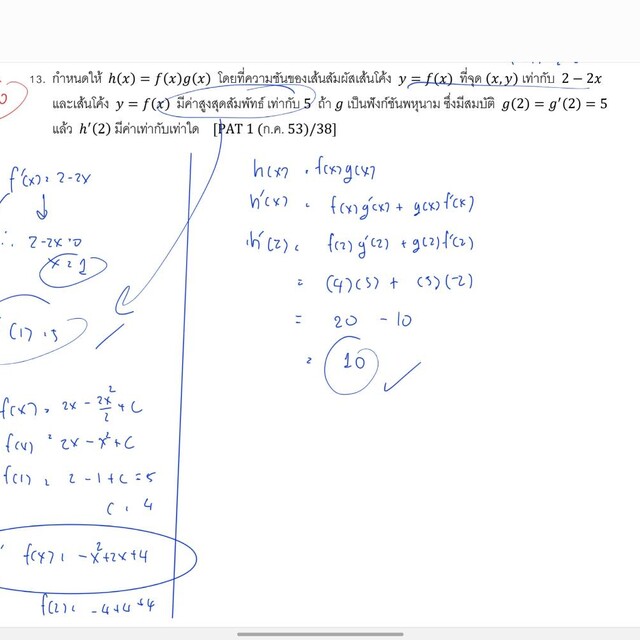 13. กำหนดให้ h(x) = f(x)g(x) โดยที่ความชันของเส้นสัมผัสเส้นโค้ง y = f(x) ที่จุด (x, y) เท่ากับ 2 − 2x
และเส้นโค้ง y = f(x) มีค่าสูงสุดสัมพัทธ์ เท่ากับ 5 ถ้า g เป็นฟังก์ชันพหุนาม ซึ่งมีสมบัติ g(2) = g′(2) = 5
แล้ว h′(2) มีค่าเท่ากับเท่าใด [PAT 1 (ก.ค. 53)/38]
f'(x) = 2-2x
∴ 2-2x = 0
x = 1
(1) = 5
f(x) = 2x - 2x²/2 + C
f(x) = 2x - x² + C
f(1) = 2 - 1 + C = 5
C = 4
f(x) = -x² + 2x + 4
f(2) = -4+4+4
h(x) = f(x)g(x)
h'(x) = f(x)g'(x) + g(x)f'(x)
h'(2) = f(2)g'(2) + g(2)f'(2)
= (4)(5) + (5)(-2)
= 20 - 10
= 10